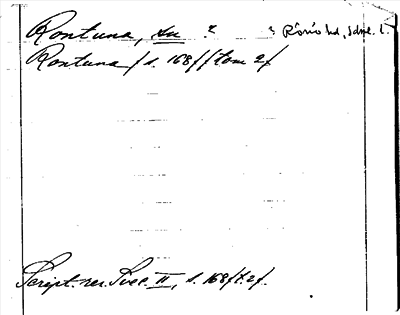 Rontuna, su ? ? Rönö hd, Södml. l.
Rontuna /s. 168/ /tom 2/
Script. rer. Svec. II, s. 168 /t. 2/.